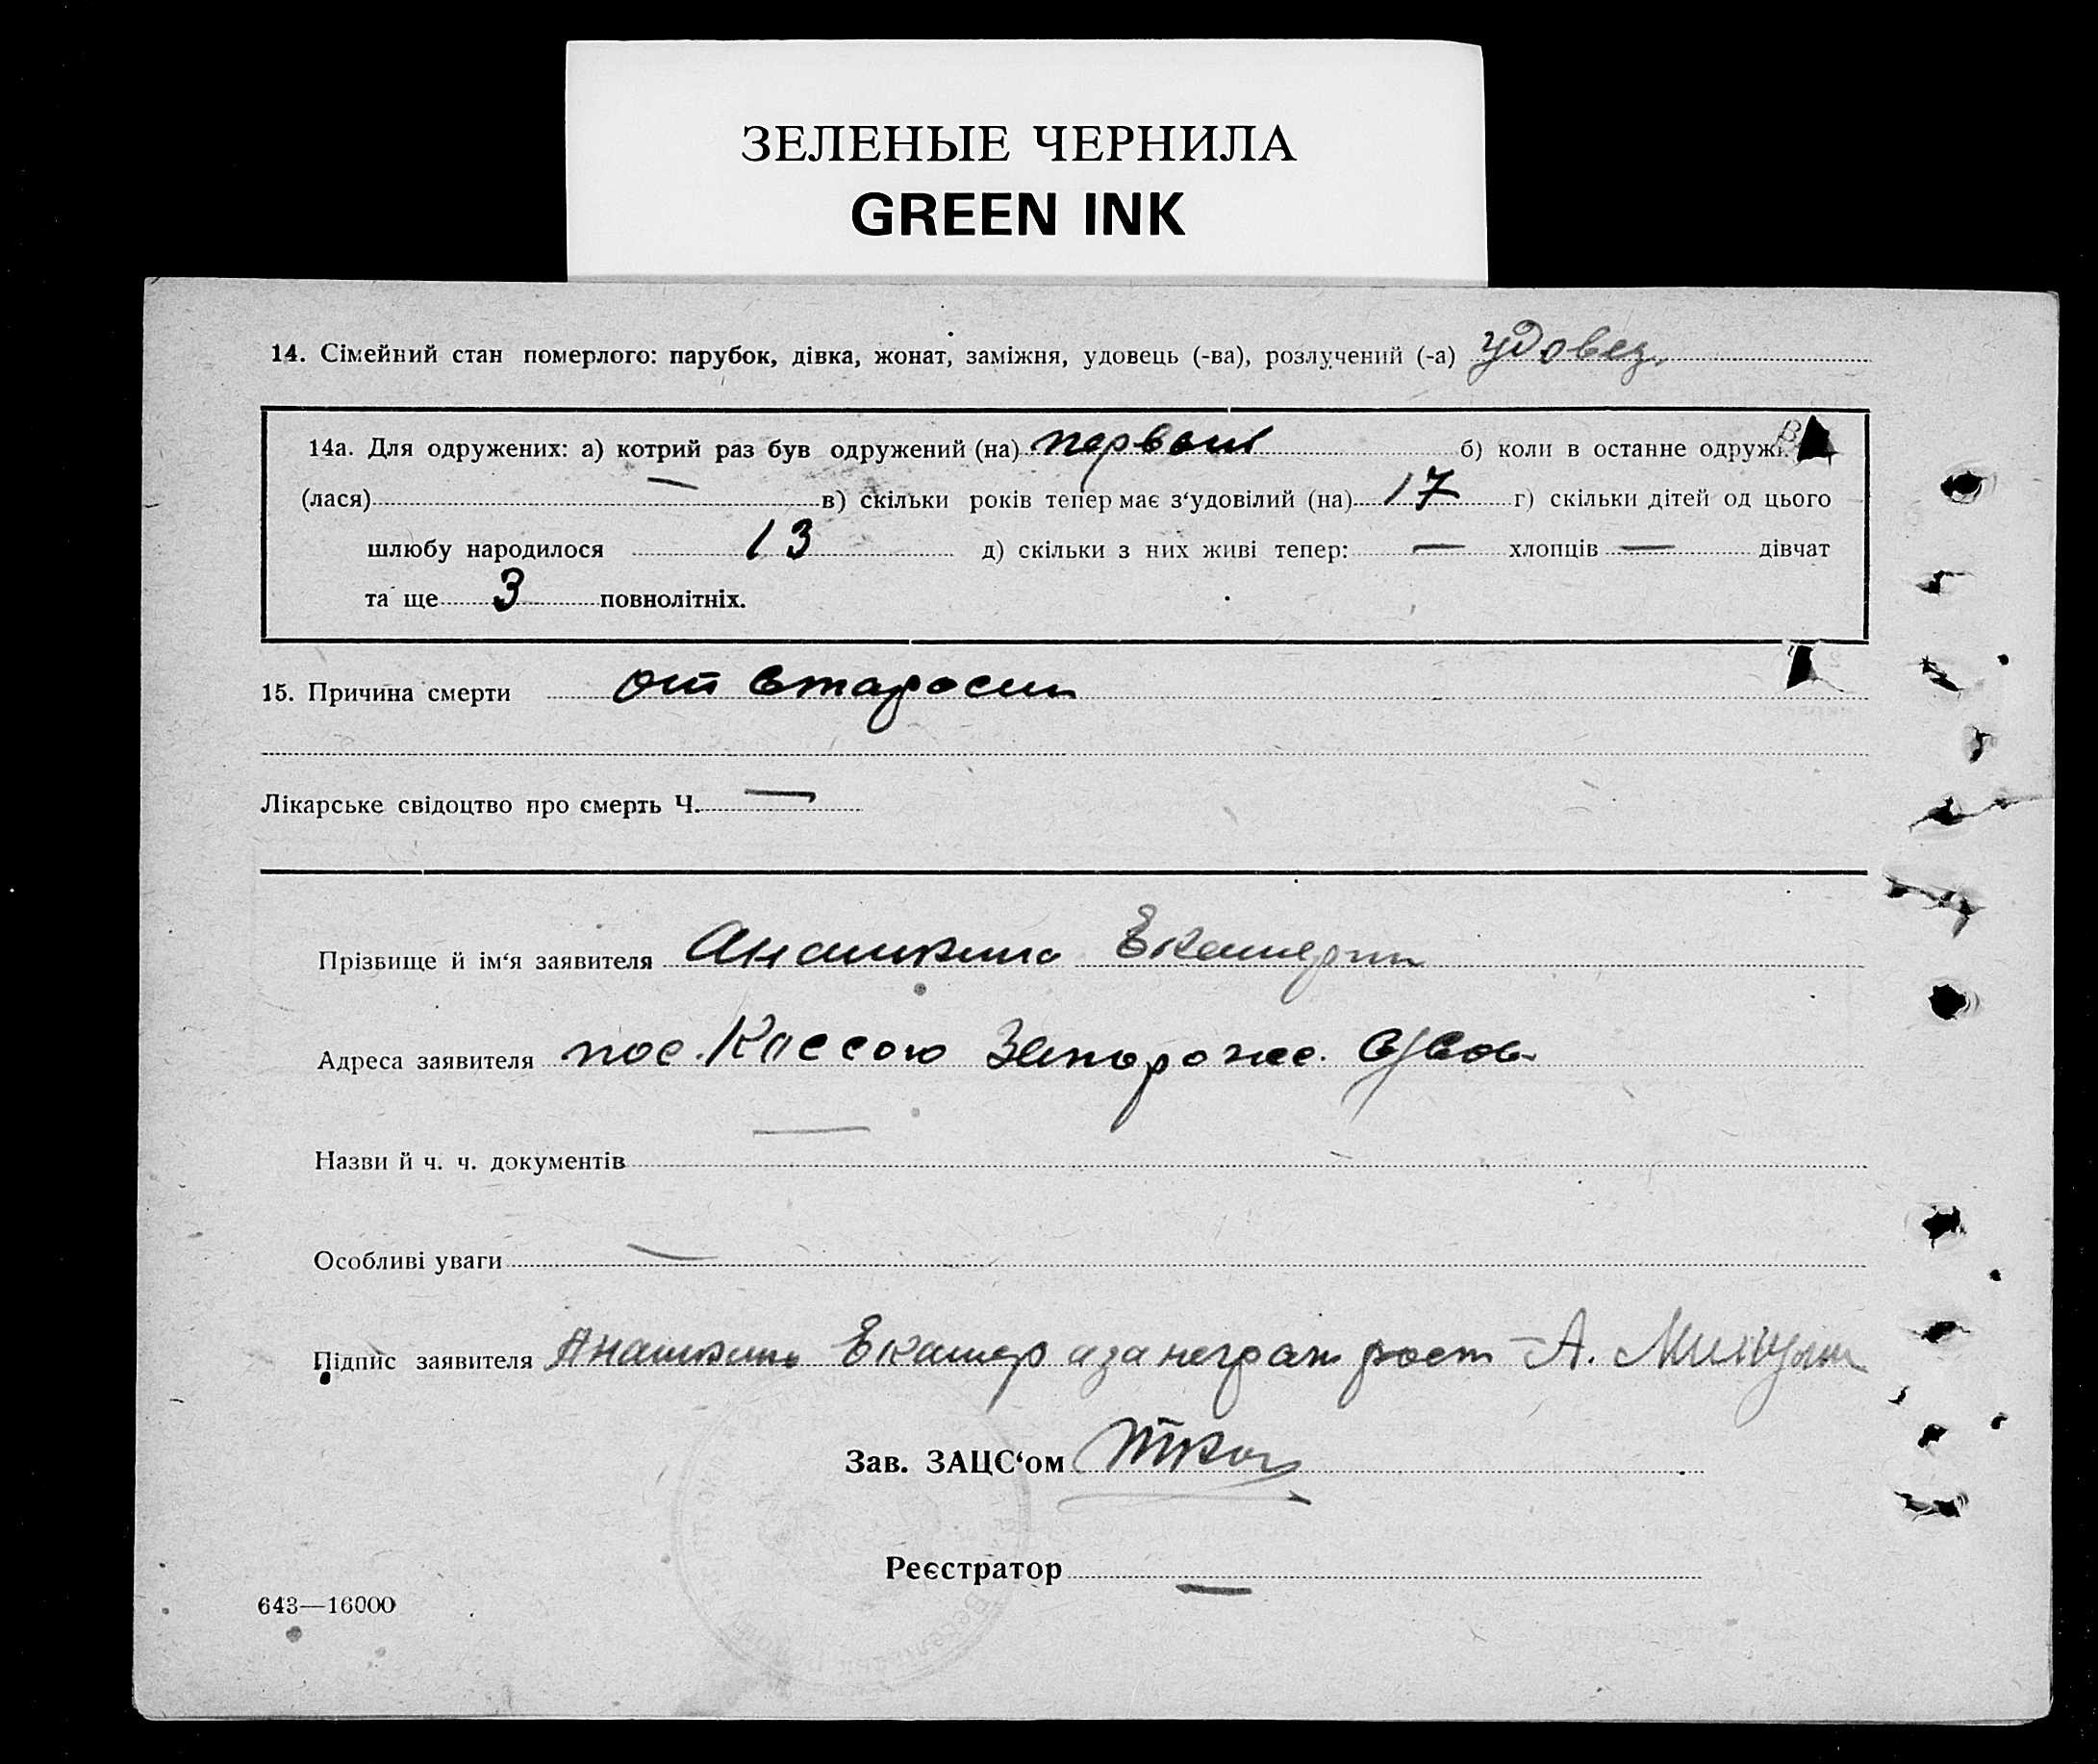 ЗЕЛЕНЫЕ ЧЕРНИЛА
GREEN INK
14. Сімейний стан померлого: парубок, дівка, жонат, заміжня, удовець (-ва), розлучений (-а) удовец
14а. Для одружених: а) котрий раз був одружений (на) первый б) коли в останнє одружи
(лася) — в) скільки років тепер має з‘удовілий (на) 17 г) скільки дітей од цього
шлюбу народилося 13 д) скільки з них живі тепер: — хлопців — дівчат
та ще 3 повнолітніх.
15. Причина смерти от старости
Лікарське свідоцтво про смерть Ч. —
Прізвище й ім‘я заявителя Анашкина Екатерин
Адреса заявителя пос.
Назви й ч. ч. документів —
Особливі уваги —
Підпис заявителя Анашкина Екатер а за неграм А.
Зав. ЗАЦС‘ом
Реєстратор —
643—16000